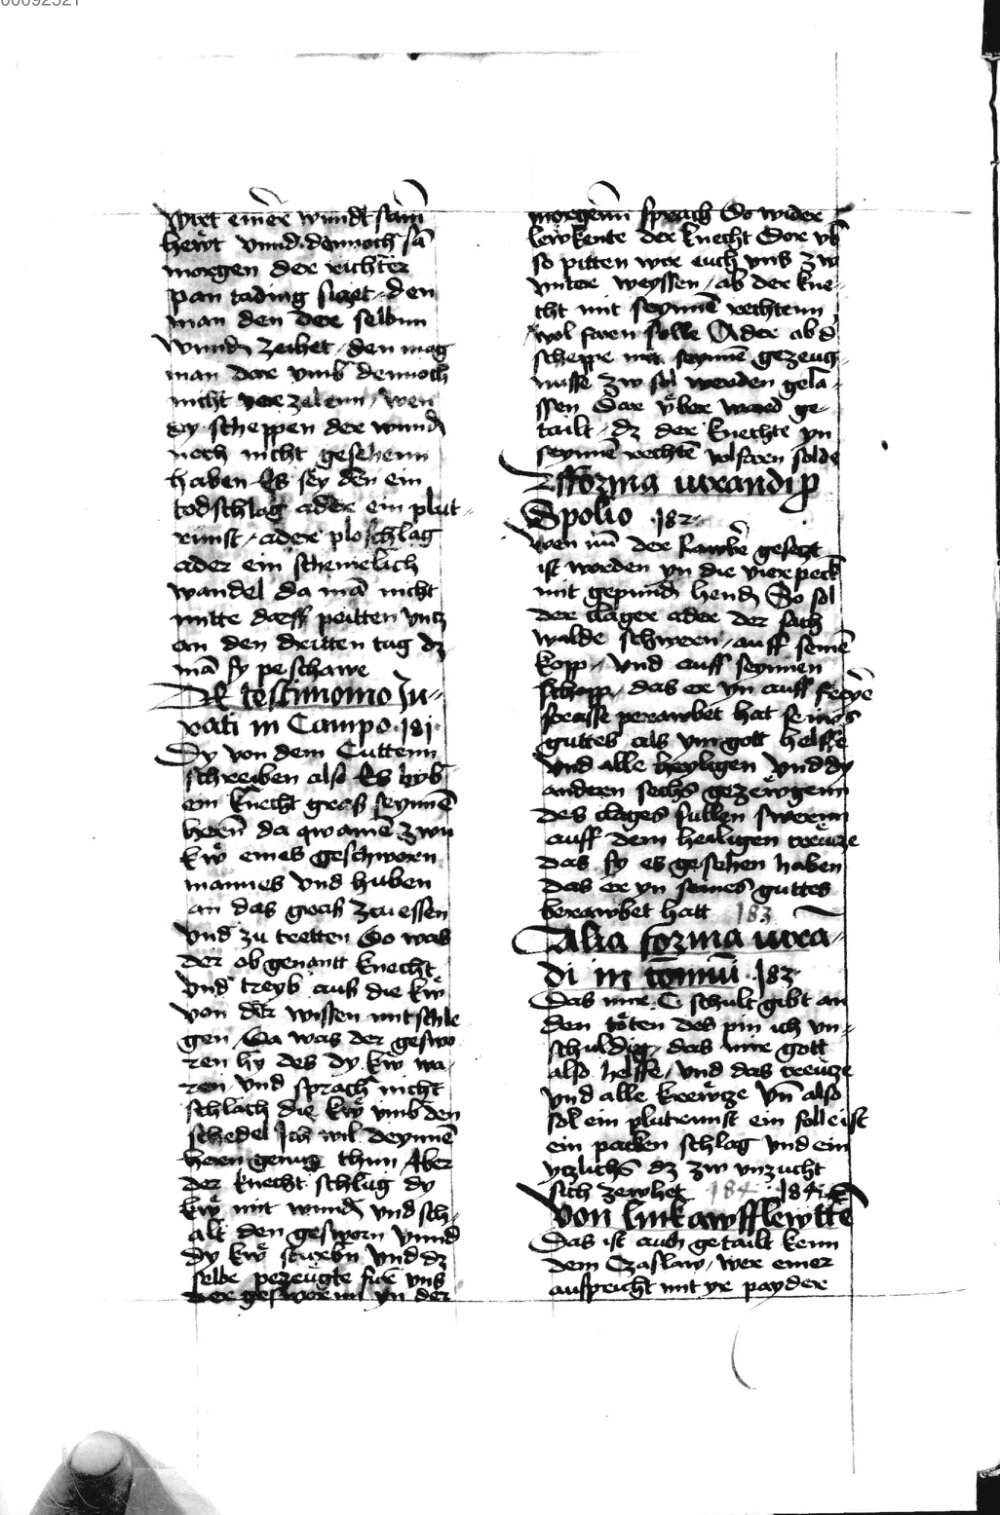 00092521
Wirt einer wundt sam
hewt vnnd dennoch sā
morgen der richter
pan tading siczet den
man den der selbnn
Wundn zeihet / den mag
man dar vmb dennoch
nicht verzelenn / wen
dy scheppen der wundn
noch nicht gesehenn
haben Es sey den ein
todschlag ader ein plut-
runst / ader ploschlag
ader ein schemelich
wandel da mā nicht
mitte darff peitten vncz
an den dritten tag dz
mā sy peschawe
De testimonio Ju-
rati in Campo · 181 ·
Dy von dem Cuttenn
schreiben also Es hyb
ein knecht graß seynnē
herrn da qwamē zwu
kw eines geschworn
mannes vnd huben
an das graß zcu essen
vnd zu tretten So was
der obgenantt knecht
vnd treyb auß die kw
von der wissen mit schle
gen / Da was der geswo
ren by des dy kw wa-
ren vnd sprach nicht
schlach die kw vmb den
schedel Ich wil deynnē
hern genug thun Aber
der knecht schlug dy
kw mit wundn vnd sch-
alt den gesworn vnnd
dy kw sturbn vnd dz
selbe pezeugte fur vns
der geswornn yn der
morgenn sprach Do wider
lewkente der knecht Dor vb
so pitten wir euch vns zw
vnter weyssen / ab der kne-
cht mit seynnē rechtenn
vol faren solle Ader ob d
scheppe mit seynnē gezeug-
nusse zw sol werden gela-
ssen Dar vber ward ge-
tailt / dz der knechte yn
seynnē rechtē volfaren solde
Fforma iurandi p
Spolio · 182 ·
Wen nu der rawber gesetzt
ist worden yn die vier peck
mit gepundn hendn So sol
der clager ader der sach
walde schwern / auff seinē
kopp / vnd auff seynnen
schopp / das er yn auff freyē
strasse perawbet hat seines
guttes als ym gott helffe
vnd alle heyligen vnd dy
andern sechs gezewgenn
des clages sullen swerenn
auff dem heiligen creucze
das sy es gesehen haben
das er yn seines guttes
berawbet hatt 183
Alia forma iura-
di in cōmuni · 183 ·
Das mir C schult gibt an
den toten des pin ich vn-
schuldig / das mir gott
also helffe / vnd das creucze
vnd alle krewcze Vn also
sol ein plutrunst ein solleist
ein packen schlag vnd ein
yczlichs dz zw vnzucht
sich zewhet 184 · 184 ·
Von linkawfflewtten
Das ist auch getailt kenn
dem Czaslaw / wer einer
auspricht mit yr payder